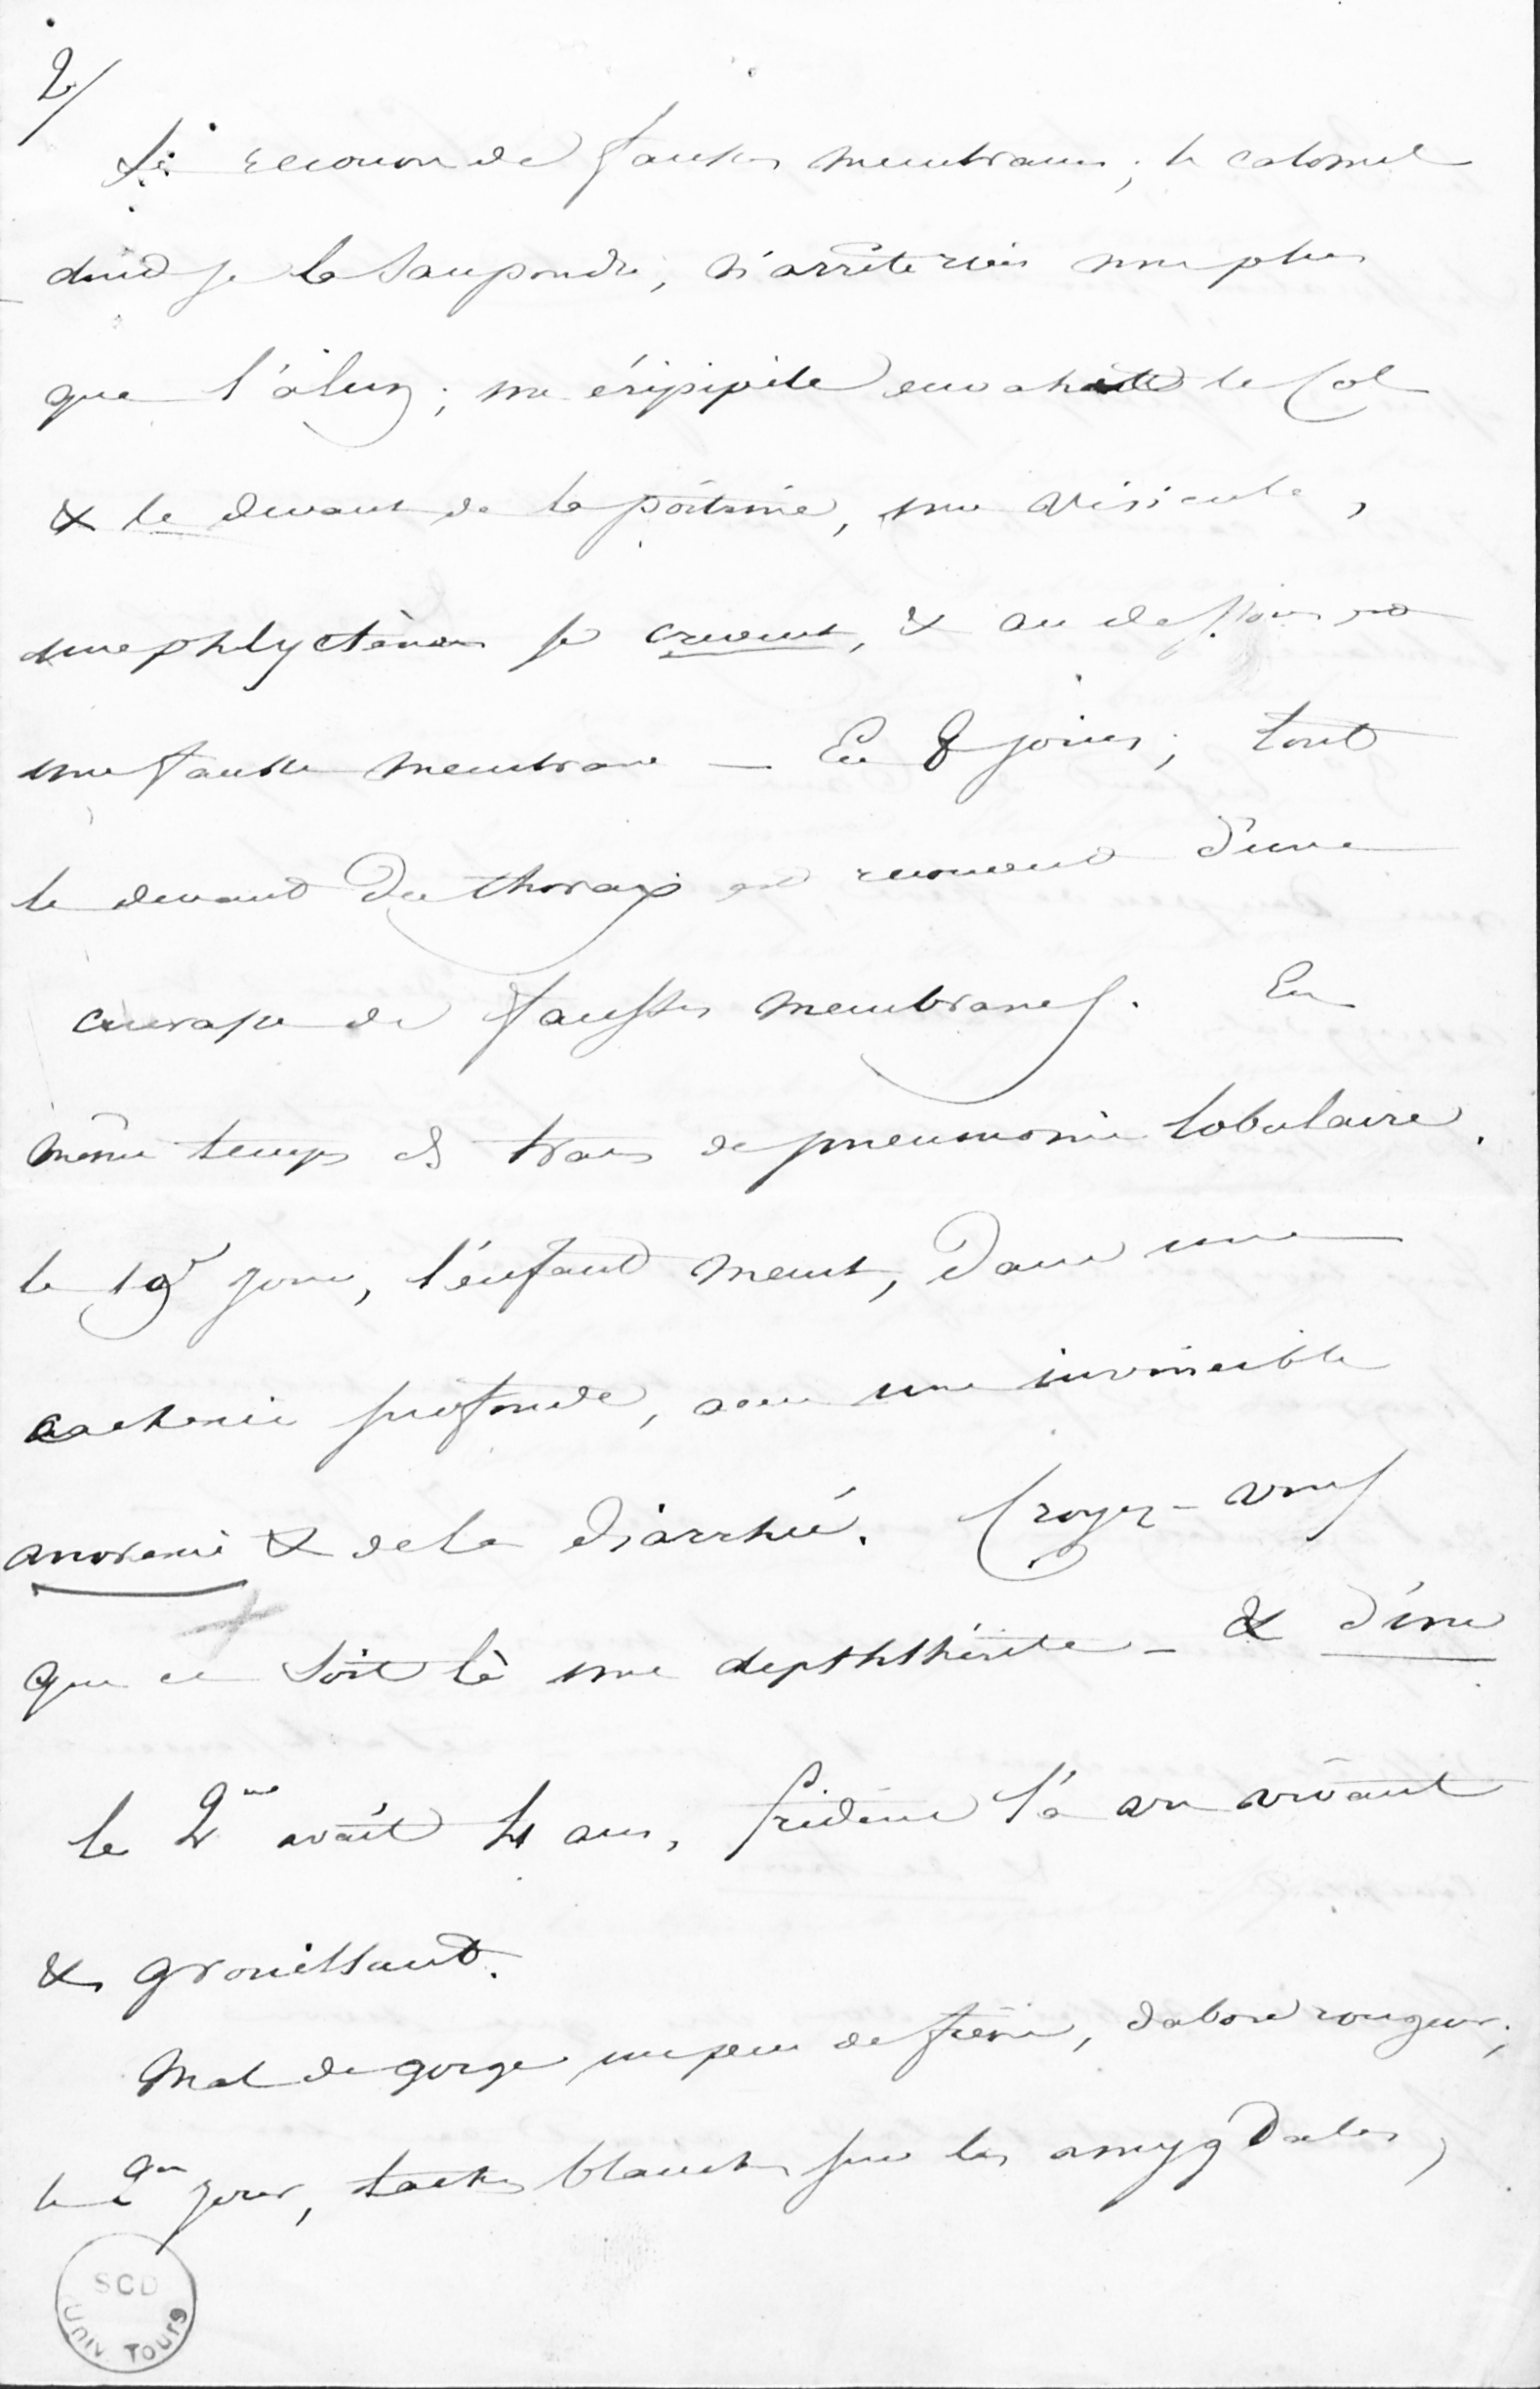 2/
se recouvre de fausses membranes; le calomel
dont je la saupoudre, n'arrête rien non plus
que l'alun; un érisipèle envahit le Col
& le devant de la poitrine, une vésicule,
une phlyctène se crevent, & au dessous est
une fausse membrane — En 8 jours, tout
le devant du thorax est recouvert d'une
cuirasse de fausses membranes. En
même temps de pneumonie lobulaire.
le 19e jour, l'enfant meurt, dans une
cachexie profonde, avec une invincible
anorexie & de la diarrhée. Croyez-vous
que ce soit là une depththérite - & d'une
le 2me avait 4 ans, l'a vu vivant
& grouillant.
Mal de gorge un peu de fièvre, dabord rougeur;
le 2me jour, taches blanches sur les amygdales,
SCD
Univ Tours